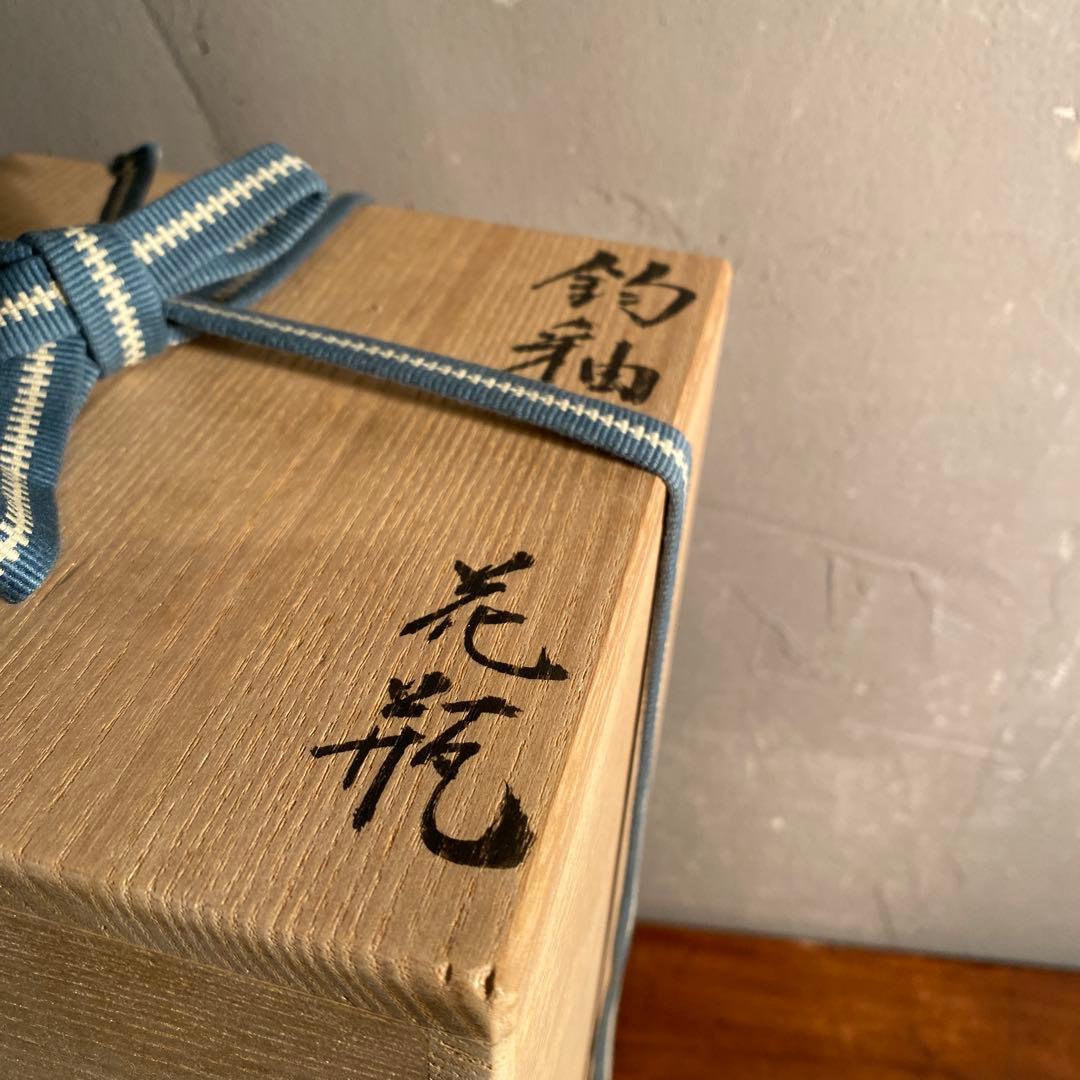 鈞釉
花瓶